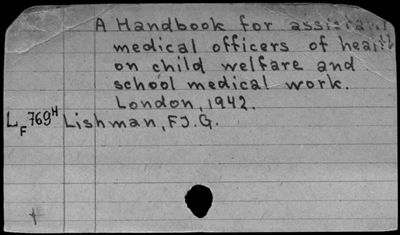 A Handbook for assistant
medical officers of health
on child welfare and
school medical work.
London, 1942.
L_F 769^H Lishman, F.J.G.